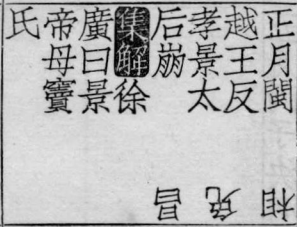 正月閩
越王反
孝景太
后崩
集解徐
廣曰景
帝母竇
氏
昌
免
相